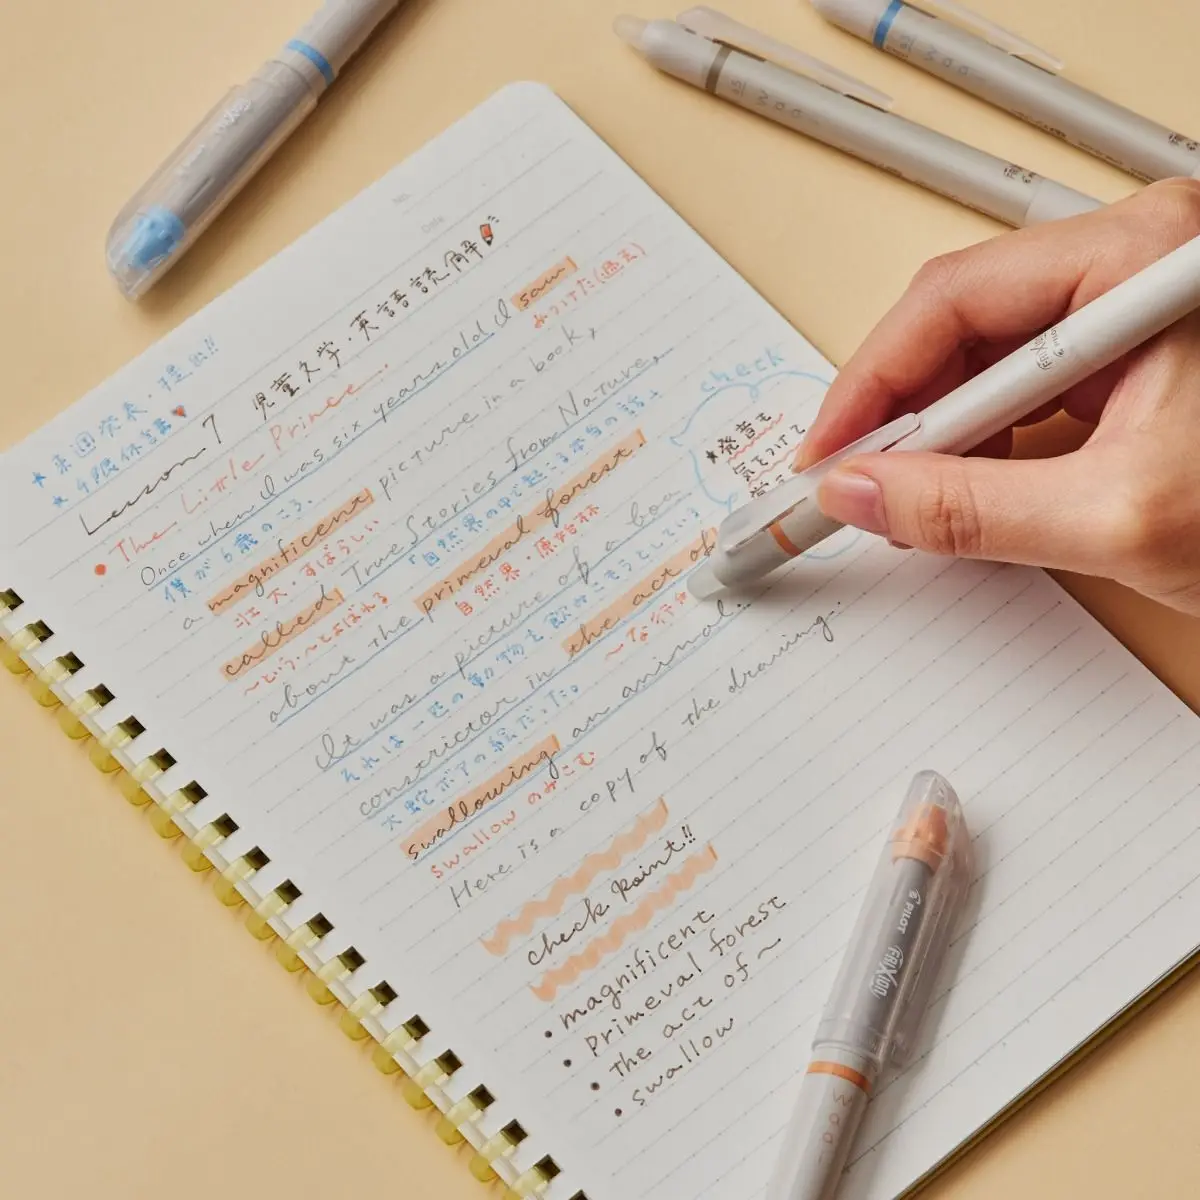 No.
Date
★来週発表・提出!!
★4限休講
Lesson 7 児童文学・英語読解
• The Little Prince..
Once when I was six years old I saw
僕が6歳のころ、
みつけた(過去)
a magnificent picture in a book,
壮大・すばらしい
called True Stories from Nature,
〜という・〜とよばれる
「自然界の中で起こる本当の話」
about the primeval forest.
自然界・原始林
It was a picture of a boa
それは一匹の動物を飲みこもうとしている
constrictor in the act of
大蛇ボアの絵だった。
swallowing an animal.
swallow のみこむ
Here is a copy of the drawing.
check
★発音も
気をつけて
check Point!!
• magnificent
• Primeval forest
• the act of〜
• swallow
PILOT
FRIXION
Waai
FRIXION
PILOT